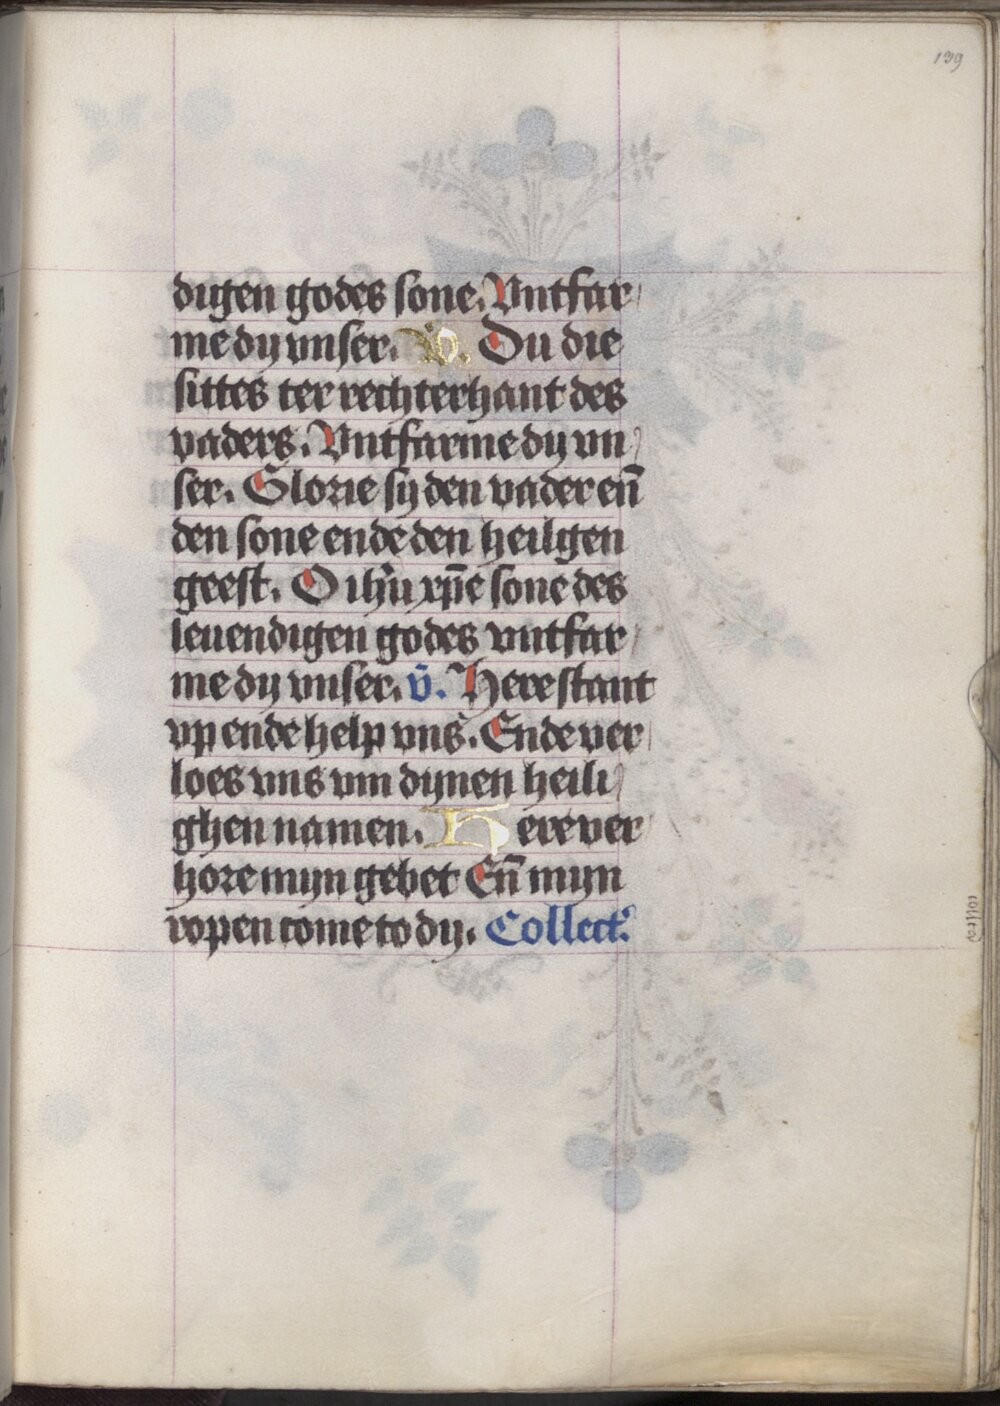 139
digen godes sone. Vntfar
me dy vnser. V. Du die
sittes ter rechterhant des
vaders. Vntfarme dy vn
ser. Glorie sy den vader en̄
den sone ende den heilgen
geest. O ih̄u xp̄e sone des
leuendigen godes vntfar
me dy vnser. v̄. Here stant
vp ende help vns. Ende ver
loes vns vm dynen heili
ghen namen. Here ver
hore myn gebet En̄ myn
ropen come to dy. Collect.
collect